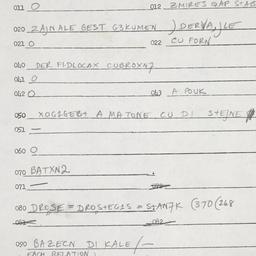 011 O 012 ZMIRES QAP
020 ZAJNALE GEST G3KUMEN ) DERVAJLE
021 O 022 CU FORN
040 DER FIDLOCAX CUBROXN7
041 O
042 O 043 A POUK
050 XOGIGEBT A MATONE CU DI S+EJNE
051 —
060 O
070 BATXN2
071 —
080 DROSE = DROS+EGIS = S+AN7K (370(268
090 BAZECN DI KALE /—
EACH RELATION